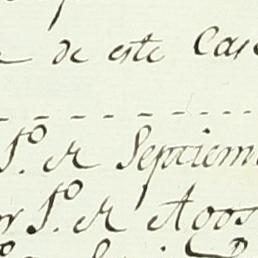 de este Cas
1º. de Septiem
1º. de Agos